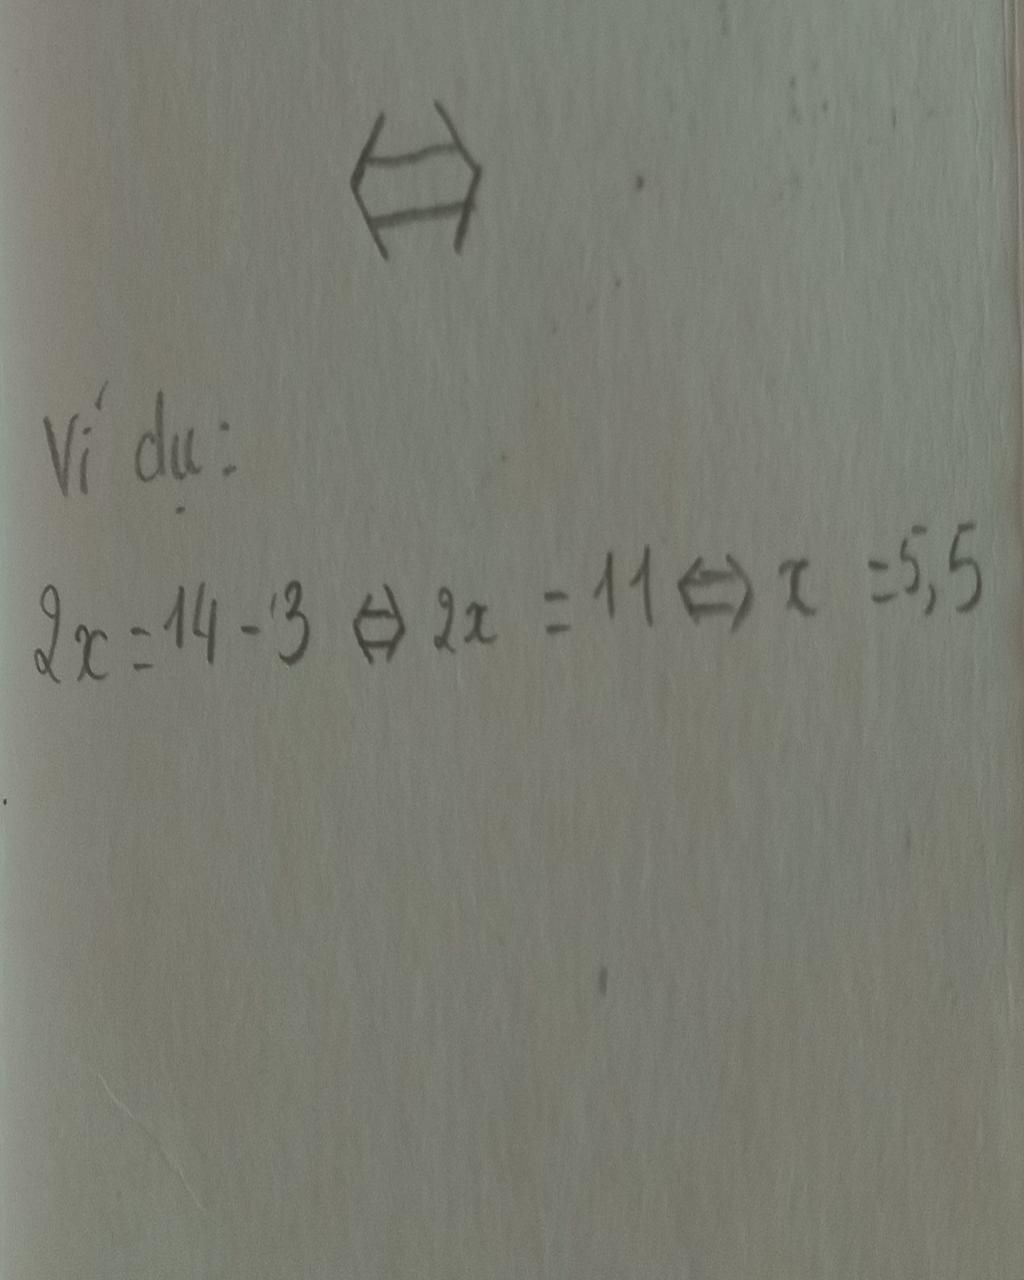 ⇔
Ví dụ:
2x = 14 - 3 ⇔ 2x = 11 ⇔ x = 5,5